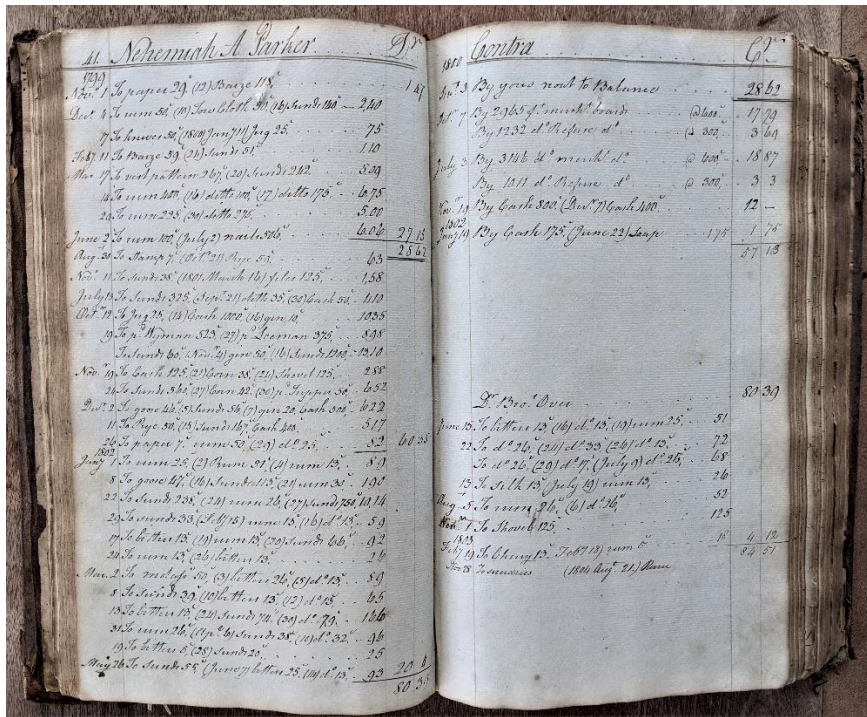 41. Nehemiah A Parker Dr
1799
Nov.r 1 To paper 29, (12) Baize 118, 1 47
Dec.r 4 To rum 50, (10) Tow Cloth 50, (16) Sunds 140 2,40
7 To knives 50, (1800 Jany 11) Jug 25, 75
Feby. 11 To Baize 59, (24) Sunds 51, 1.10
Mar. 17 To vest pattern 267, (20) Sunds 242, 5.09
To rum 400, (16) ditto 100, (17) ditto 175, 6.75
29 To rum 225, (30) ditto 275, 5.00
June 2 To rum 100, (July 2) nails 506, 6.06 27 15
28 62
Aug. 30 To Stamp 7, (Oct.r 21) Rye 56, 63
Nov.r 11 To Sunds 38, (1801 March 16) files 125, 1,58
July 13 To Sunds 325, (Sep.r 21) ditto 35, (30) Cash 50, 4 10
Oct.r 12 To Jug 25, (14) Cash 1000, (16) gin 10, 1035
19 To p.d Wyman 523, (27) p.d 375, 898
To Sunds 60, (Nov.r 4) gin 50, (16) Sunds 1200, 1310
Nov.r 19 To Cash 125, (21) Corn 38, (24) Shovel 125, 2 88
24 To Sunds 360, (27) Corn 42, (30) p.d Supper 50, 6 52
Dec.r 2 To goose 46, (5) Sunds 56, (7) gin 20, Cash 500, 6 22
11 To Rye 50, (13) Sunds 167, Cash 300, 5 17
26 To paper 7, rum 50, (29) d.o 25, 82
1802
Jany 1 To rum 25, (2) Rum 51, (4) rum 13, 8 9
8 To goose 47, (16) Sunds 113, (21) rum 30, 1 90
22 To Sunds 238, (24) rum 26, (27) Sunds 750, 10,14
29 To Sunds 33, (Feby 15) rum 13, (16) d.o 13, 5 9
17 To bitters 13, (19) rum 13, (20) Sunds 66, 9 2
24 To rum 13, (26) bitters 13, 2 6
Mar. 2 To 50, (3) bitters 26, (5) d.o 13, 8 9
8 To Sunds 39, (10) bitters 13, (12) d.o 13, 6 5
13 To bitters 13, (24) Sunds 74, (30) d.o 79, 1 66
31 To rum 26, (Ap.l 6) Sunds 38, (10) d.o 32, 9 6
19 To bitters 5, (28) Sunds 20, 2 5
May 26 To Sunds 55, (June 7) bitters 25, (14) d.o 13, 93
1800 Contra Cr
By your nout to Balance 28 62
7 By 2965 f.t merch. boards @ 600, 17 79
By 1232 d.o Refuse d.o @ 300, 3 69
July 3 By 3146 d.o merch. d.o @ 600, 18 87
By 1011 d.o Refuse d.o @ 300, 3 3
Nov.r 19 By Cash 800, (Dec.r 7) Cash 400, 12 –
1802
Jany 19 By Cash 175, (June 22) Soap 175 1 75
57 13
80 39
Dr. Bro.t Over
June 15 To bitters 13, (16) d.o 13, (19) rum 25, 51
22 To d.o 26, (24) d.o 33, (26) d.o 13, 72
To d.o 26, (29) d.o 17, (July 9) d.o 25, 68
13 To Silk 13, (July 19) rum 13, 26
Aug. 5 To rum 26, (6) d.o 26, 52
Nov.r 1 To Shovel 125, 125
1803
Feby 19 To 13, (Feby 18) rum 4 12
84 51
Nov 28 To sundries (1804 Aug.t 21)